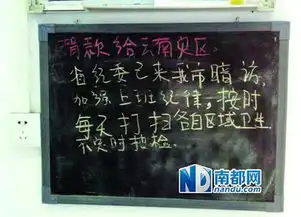 捐款给云南灾区。
省纪委已来我市暗访,
加强上班纪律,按时
每天打扫各自区域卫生
不定时抽检.
南都网
nandu.com